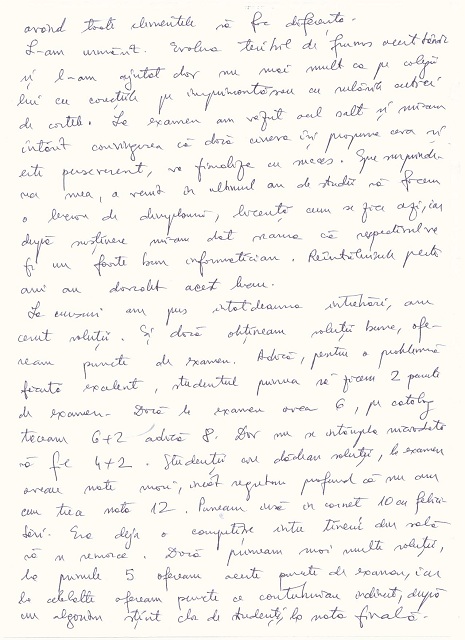 având toate elementele să fac diferența.
L-am urmărit. Evolua teribil de frumos acest tânăr
și l-am ajutat dar nu mai mult ca pe colegii
lui cu corectitudine pe imprimanta sau cu rulările
de cartele. La examen am văzut acel salt și mi-am
întărit convingerea că dacă cineva își propune ceva și
este perseverent, va finaliza cu succes. Spre surprinde-
rea mea, a venit în ultimul an de studii să facem
o lucrare de diplomă, licență cum se zice azi, iar
după susținere mi-am dat seama că respectivul va
fi un foarte bun informatician. Reîntâlnirile peste
ani au dovedit acest lucru.
La cursuri am pus întotdeauna întrebări, am
cerut soluții. Și dacă obțineam soluții bune, ofe-
ream puncte de examen. Adică, pentru o problemă
făcută excelent, studentul putea să primească 2 puncte
de examen. Dacă la examen avea 6, pe catalog
treceam 6+2 adică 8. Dar nu se întâmpla niciodată
să fie 4+2. Studenții care dădeau soluții, la examen
aveau note mari, încât regretam profund că nu am
cum trece nota 12. Puneam însă în carnet 10 cu felici-
tări. Era deja o competiție între tineri dar sală
să se remarce. Dacă primeam mai multe soluții,
la primele 5 ofeream aceste puncte de examen, iar
la celelalte ofeream puncte ce contribuiau indirect, după
un algoritm știut de studenți, la nota finală.